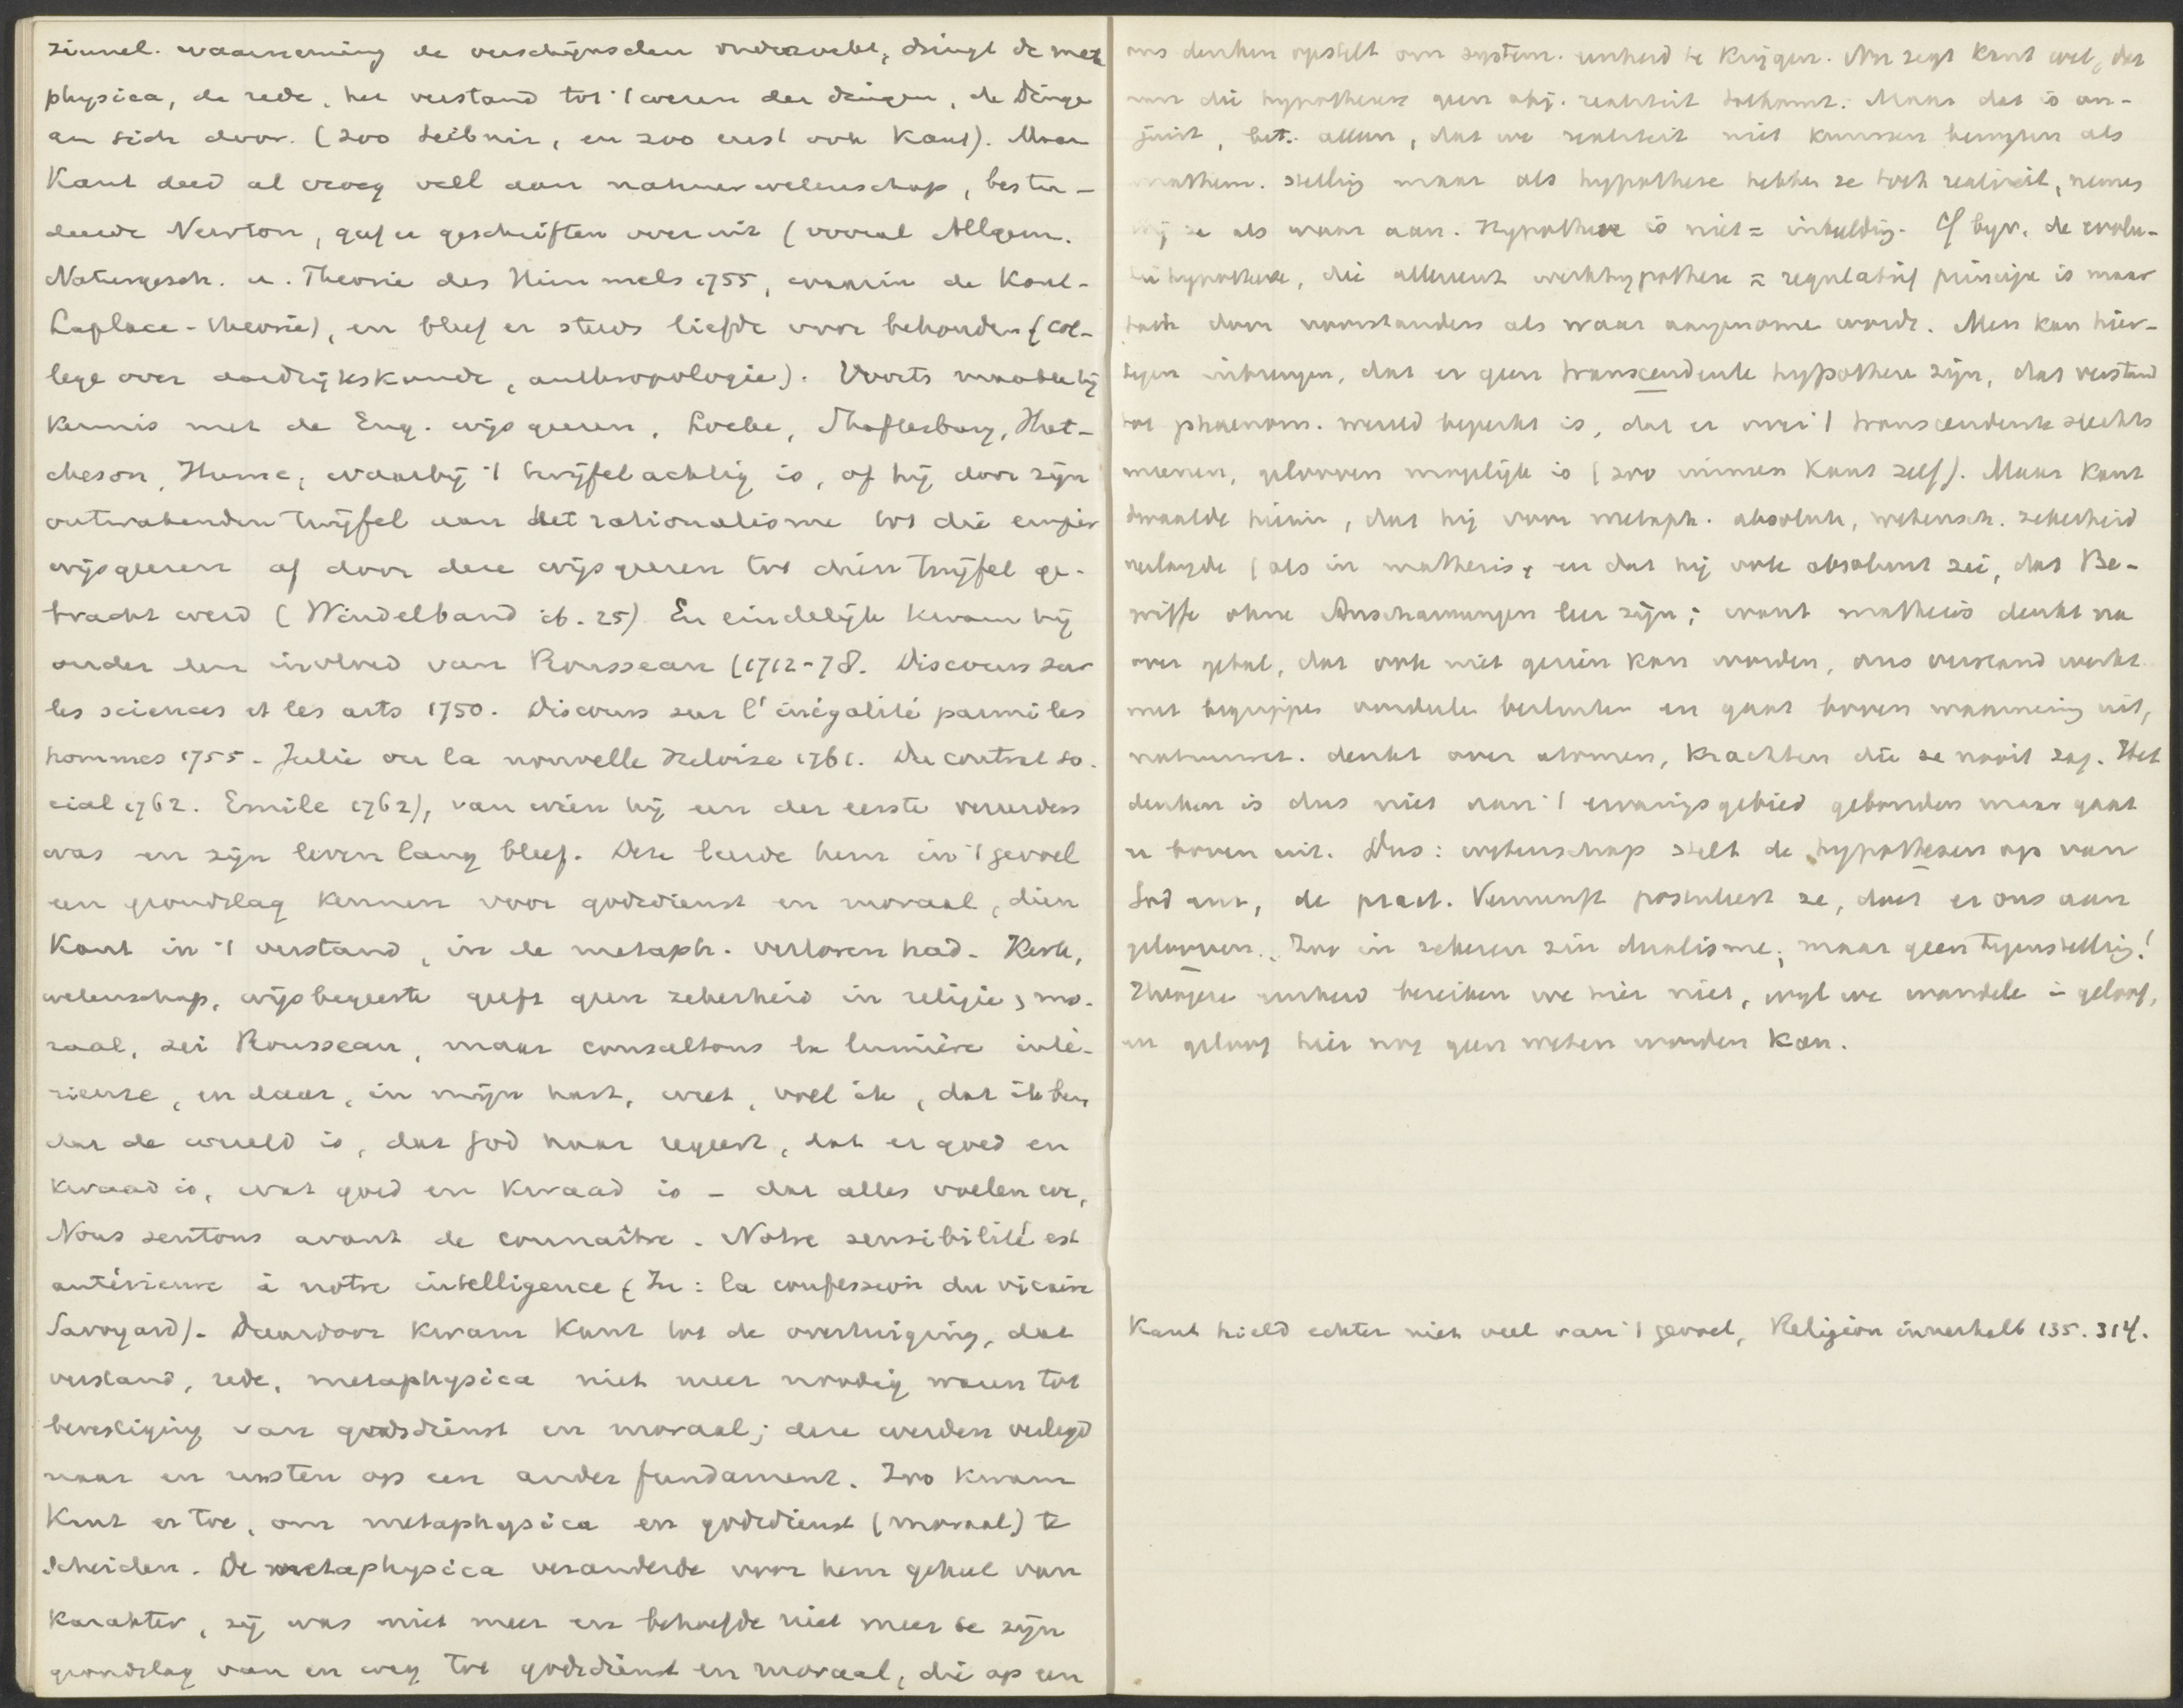 zinnel. waarneming de verschijnselen onderzoekt, dringt de meta
physica, de rede, het verstand tot 't wezen der dingen, de Dinge
an sich door. (zoo Leibniz, en zoo eerst ook Kant). Maar
Kant deed al vroeg veel aan natuurwetenschap, bestu-
deerde Newton, gaf er geschriften over uit (vooral Allgem.
Naturgesch. u. Theorie des Himmels 1755, waarin de Kant-
Laplace-theorie), en bleef er steeds liefde voor behouden (col-
lege over aardrijkskunde, anthropologie). Voorts maakte hij
kennis met de Eng. wijsgeeren, Locke, Shaftesbury, Hut-
cheson, Hume, waarbij 't twijfelachtig is, of hij door zijn
ontwakenden twijfel aan het rationalisme tot die empir
wijsgeeren of door deze wijsgeeren tot dien twijfel ge-
bracht werd (Windelband ib. 25) En eindelijk kwam hij
onder den invloed van Rousseau (1712-78. Discours sur
les sciences et les arts 1750. Discours sur l'inégalité parmi les
hommes 1755. Julie ou la nouvelle Heloise 1761. Du contrat so-
cial 1762. Emile 1762), van wien hij een der eerste vereerders
was en zijn leven lang bleef. Deze leerde hem in 't gevoel
een grondslag kennen voor godsdienst en moraal, dien
Kant in 't verstand, in de metaph. verloren had. Kerk,
wetenschap, wijsbegeerte geeft geen zekerheid in religie, mo-
raal, zei Rousseau, maar consultons la lumière inté-
rieure, en daar, in mijn hart, weet, voel ik, dat ik ben,
dat de wereld is, dat God haar regeert, dat er goed en
kwaad is, wat goed en kwaad is - dat alles voelen we,
Nous sentons avant de connaître. Notre sensibilité est
antérieure à notre intelligence (In: la confession du vicaire
Savoyard). Daardoor kwam Kant tot de overtuiging, dat
verstand, rede, metaphysica niet meer noodig waren tot
bevestiging van godsdienst en moraal; deze werden verlegd
naar en rustten op een ander fundament. Zoo kwam
Kant er toe, om metaphysica en godsdienst (moraal) te
scheiden. De metaphysica veranderde voor hem geheel van
karakter, zij was niet meer en behoefde niet meer te zijn
grondslag van en weg tot godsdienst en moraal, die op een
ons denken opstelt om system. eenheid te krijgen. Nu zegt Kant wel, dat
aan die hypothesen geen obj. realiteit toekomt. Maar dat is on-
juist, bet. alleen, dat we realiteit niet kunnen bewijzen als
mathem. stellig maar als hypothese hebben ze toch realiteit, nemen
wij ze als waar aan. Hypothese is niet = inbeelding. Cf bijv. de evolu-
tiehypothese, die allereerst werkhypothese = regulatief principe is maar
toch door voorstanders als waar aangenomen wordt. Men kan hier-
tegen inbrengen, dat er geen transcendente hypothesen zijn, dat verstand
tot phaenom. wereld beperkt is, dat er over 't transcendente slechts
meenen, gelooven mogelijk is (zoo immers Kant zelf). Maar Kant
dwaalde hierin, dat hij voor metaph. absolute, wetensch. zekerheid
verlangde (als in mathesis, en dat hij ook absoluut zei, dat Be-
griffe ohne Anschauungen leer zijn; want mathesis denkt na
over getal, dat ook niet gezien kan worden, ons verstand werkt
met begrippen oordeelen besluiten en gaat boven waarneming uit,
natuurwet. denkt over atomen, krachten die ze nooit zag. Het
denken is dus niet aan 't ervaringsgebied gebonden maar gaat
er boven uit. Dus: wetenschap stelt de hypothesen op van
God enz, de pract. Vernunft postuleert ze, doet er ons aan
gelooven. Zoo in zekeren zin dualisme, maar geen tegenstelling!
Hoogere eenheid bereiken we hier niet, wijl we wandelen in geloof,
en geloof hier nog geen weten worden kan.
Kant hield echter niet veel van 't gevoel, Religion innerhalb 135. 314.